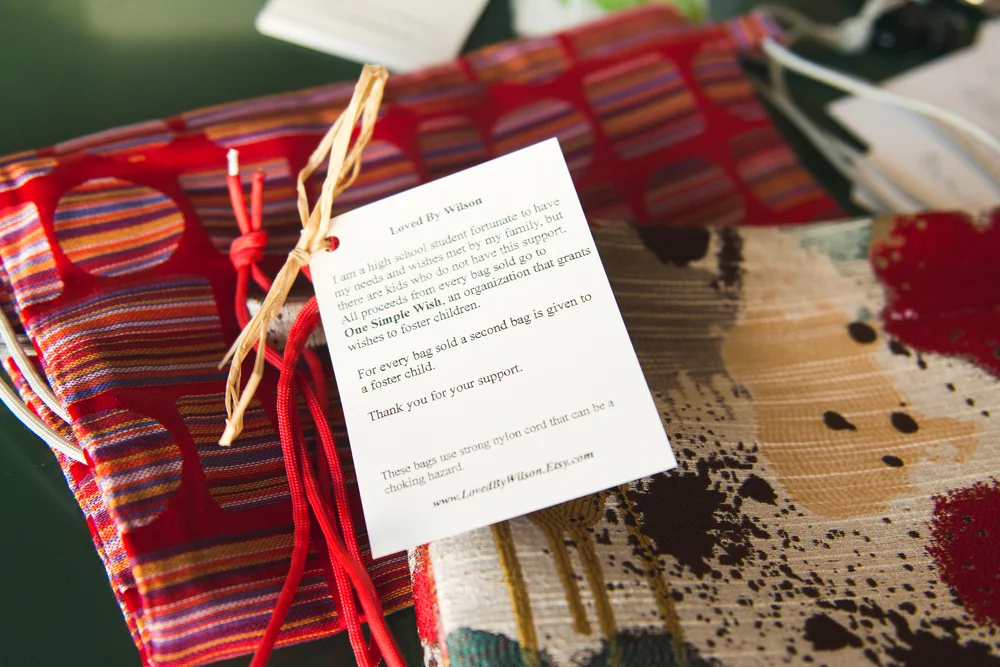 Loved By Wilson
I am a high school student fortunate to have
my needs and wishes met by my family, but
there are kids who do not have this support.
All proceeds from every bag sold go to
One Simple Wish, an organization that grants
wishes to foster children.
For every bag sold a second bag is given to
a foster child.
Thank you for your support.
These bags use strong nylon cord that can be a
choking hazard.
www.LovedByWilson.Etsy.com